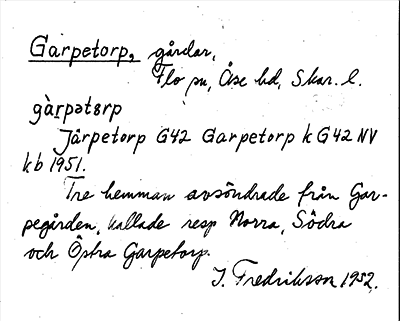 Garpetorp, gårdar,
Flo sn, Åse hd, Skar. l.
gàrpətɞrp
Jårpetorp G42 Garpetorp k G42 NV
kb 1951.
Tre hemman avsöndrade från Gar-
pegården, kallade resp Norra, Södra
och Östra Garpetorp.
I. Fredriksson 1952.